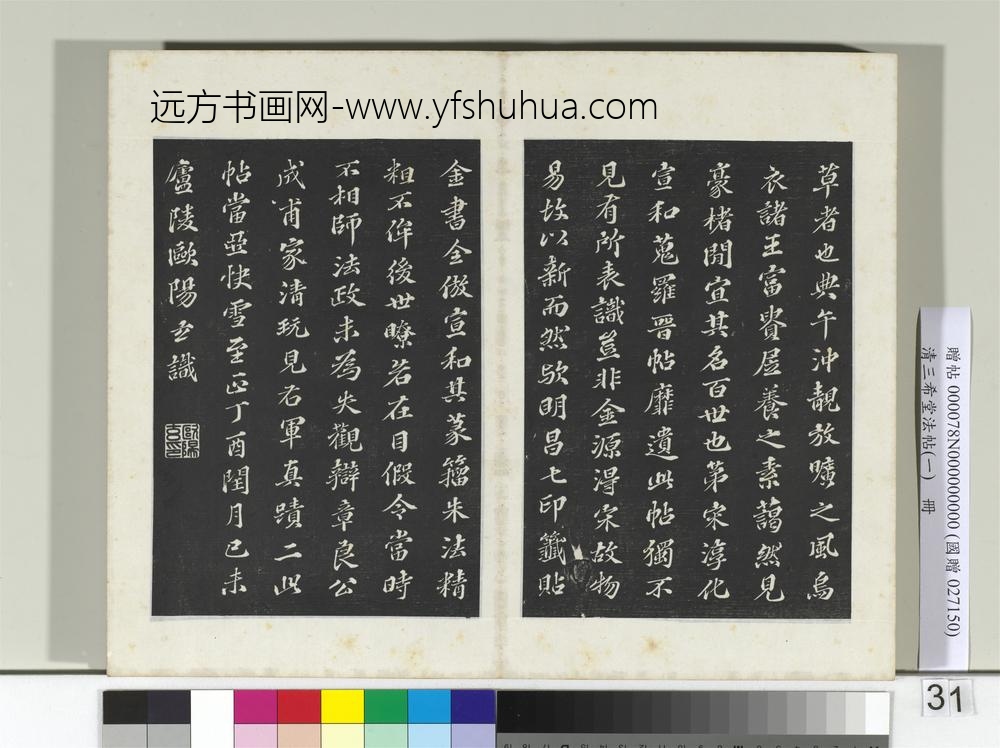 远方书画网-www.yfshuhua.com
草者也典午沖靚放曠之風烏
衣諸王富貴居養之素藹然見
豪楮間宜其名百世也第宋淳化
宣和蒐羅晉帖靡遺此帖獨不
見有所表識豈非金源得宋故物
易故以新而然歟明昌七印籤貼
金書全倣宣和其篆籀朱法精
粗不侔後世瞭若在目假令當時
不相師法政未為失觀辯章良公
成甫家清玩見右軍真蹟二此
帖當亞快雪至正丁酉閏月己未
廬陵歐陽玄識
贈帖 000078N000000000 (國贈 027150)
清三希堂法帖(一) 冊
31